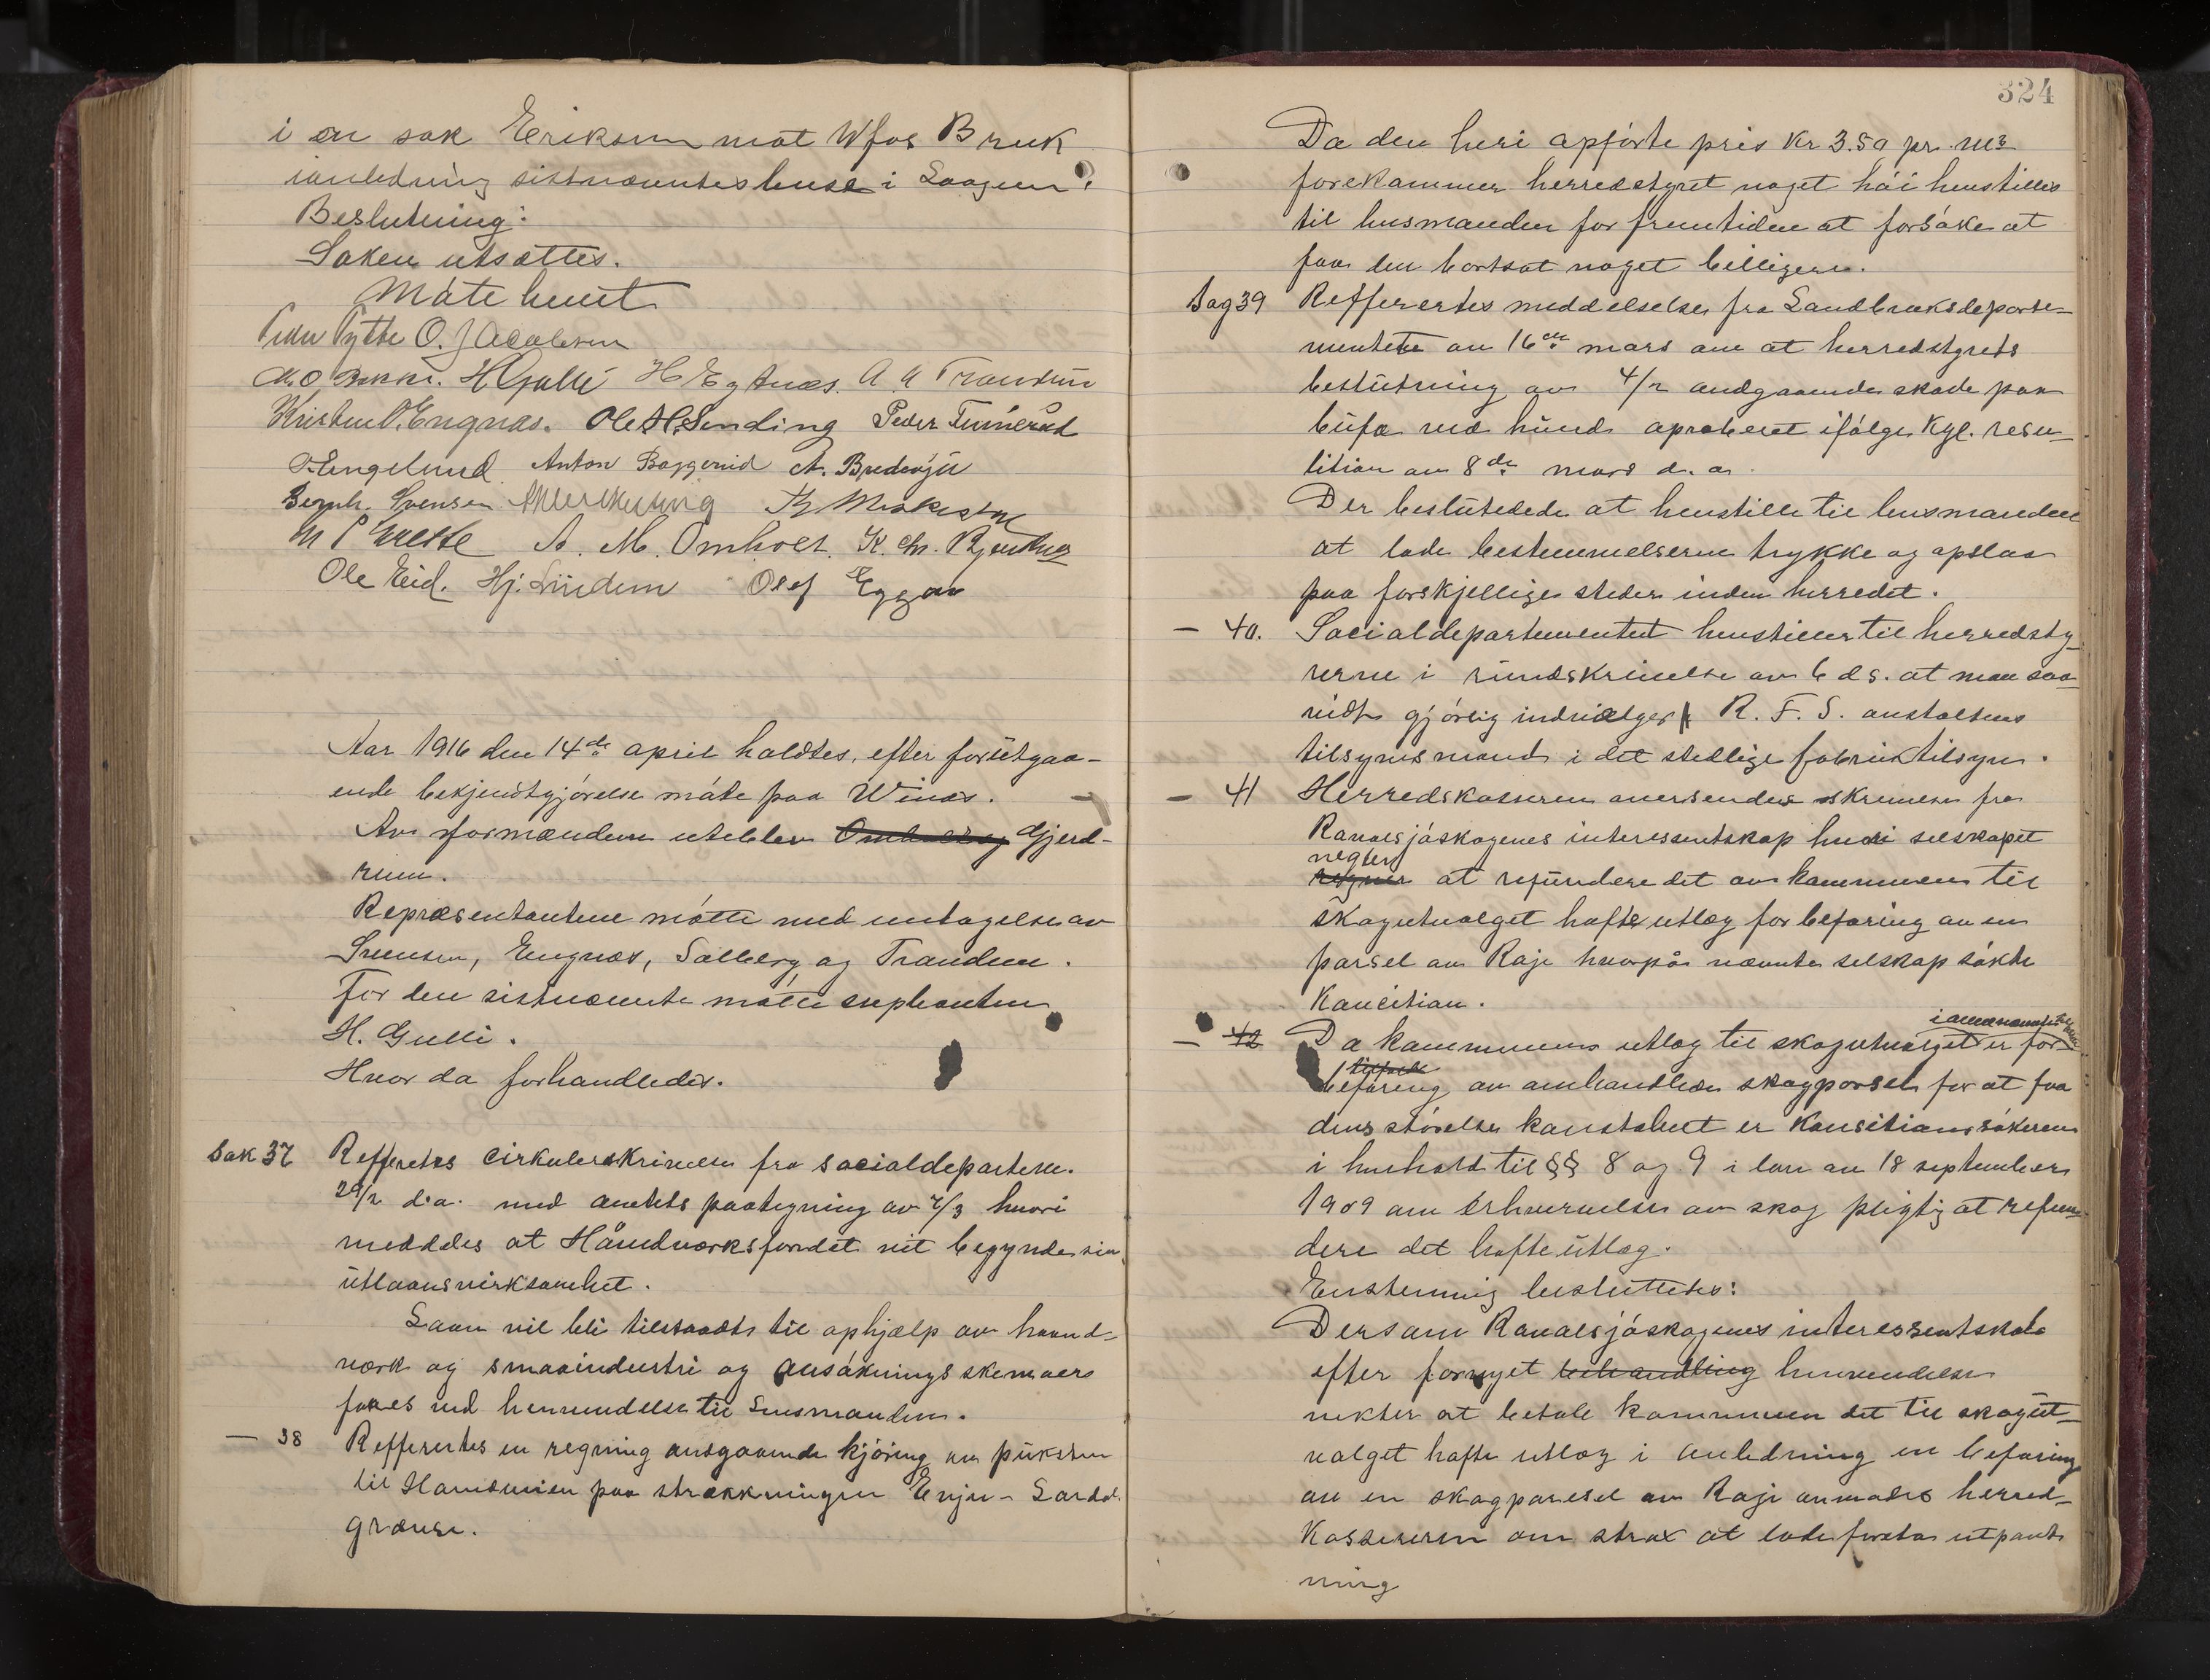 i en sak Eriksen mot Wfos Bruk
i anledning sistnævntes lense i Laagen.
Beslutning:
Saken utsættes.
Møte hævet
Peder Pytte O. Jacobsen
H Gulli H Egtnæs. A. A Trandum
Kristen O. Engnæs. Ole H. Sending Peder
Engelund Anton Baggerud A. Bredesju
Bernh. Svensen
A. M. Omholt. K. Chr.
Ole Eid. Hj. Lindem Olaf Eggar
Aar 1916 den 14de april holdtes, efter forutgaa-
ende bekjendtgjørelse møte paa Winæs.
Av formændene uteblev Omholt og Gjerd-
rum.
Repræsentantene møtte med undtagelse av
Svensen, Engnæs, Solberg og Trandem.
For den sistnævnte møtte suplanten
H. Gulli.
Hvor da forhandledes.
Sak 37 Refferertes cirkulærskrivelse fra socialdepartem.
29/2 d.a. med amtets paategning av 7/3 hvori
meddeles at Håndverksfondet vil begynde sin
utlaansvirksomhet.
Laan vil bli tilstaadt til ophjælp av haand-
verk og smaaindustri og ansøkningsskemaer
faaes ved henvendelse til Lensmanden.
— 38 Refferertes en regning angaaende kjøring av puksten
til Hamsmien paa strækkningen Enju - Sandd.
grænse.
324
Da den heri opførte pris Kr 3.50 pr. m3
forekommer herredstyret noget høi henstilles
til lensmanden for fremtiden at forsøke at
faa den bortsat noget billigere.
Sag 39 Reffererertes meddelelse fra Landbruksdeparte-
mentete av 16de mars om at herredstyrets
beslutning av 4/2 angaaende skade paa
bufæ ved hund aproberet ifølge Kgl. reso-
lition av 8de mars d. a.
Der beslutedede at henstille til lensmanden
at lade bestemmelserne trykke og opslaa
paa forskjellige steder inden herredet.
— 40. Socialdepartementet henstiller til herredsty-
rerne i rundskrivelse av 6 ds. at man saa-
vidt gjørlig indvælger R. F. S. anstaltens
tilsynsmand i det stedlige fabriktilsyn.
— 41 Herredskassereren oversender skrivelse fra
Ravalsjøskogenes interessentskap hvori selskapet
negter
regner at refundere det av kommunen til
skogutvalget hafte utlæg for befaring av en
parsel av Raje hvorpå nævnte selskap søkte
Koncition.
— 42 Da kommunens utlæg til skogutvalget er for
befaring av omhandlede skogparsel for at faa
dens størelse konstatert er Konsitionssøkeren
i henhold til §§ 8 og 9 i lov av 18 september
1909 om Erhvervelse av skog pligtig at refun-
dere det hafte utlæg.
Enstemmig besluttetes:
Dersom Ravalsjøskogenes interessentskab
efter fornyet behandling henvendelse
nekter at betale kommunen det til skogut-
valget hafte utlæg i anledning en befaring
av en skogparsel av Raje anmodes herred-
kassereren om strax at lade foreta utpant-
ning